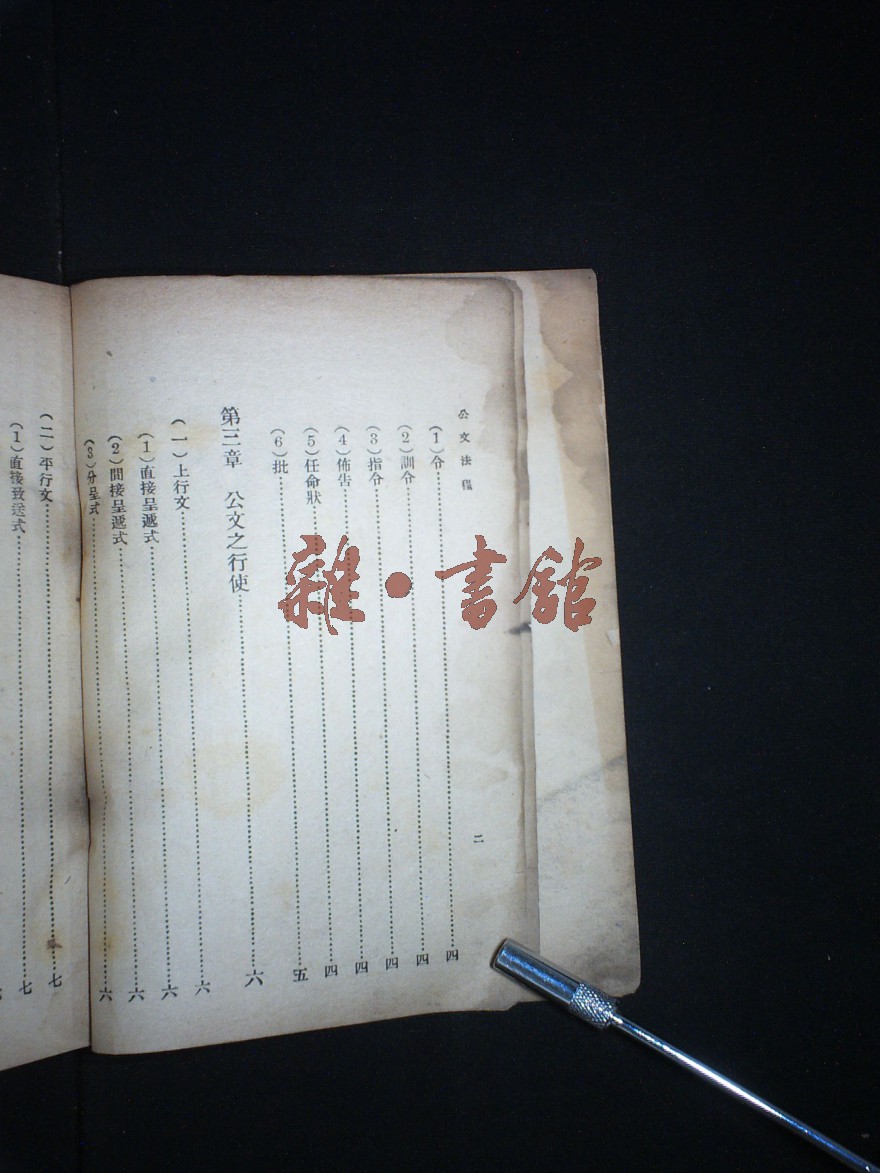 公文法程
二
(1)令……四
(2)訓令……四
(3)指令……四
(4)佈告……四
(5)任命狀……四
(6)批……五
第三章 公文之行使……六
(一)上行文……六
(1)直接呈遞式……六
(2)間接呈遞式……六
(3)分呈式……六
(二)平行文……七
(1)直接致送式……七
雜·書館